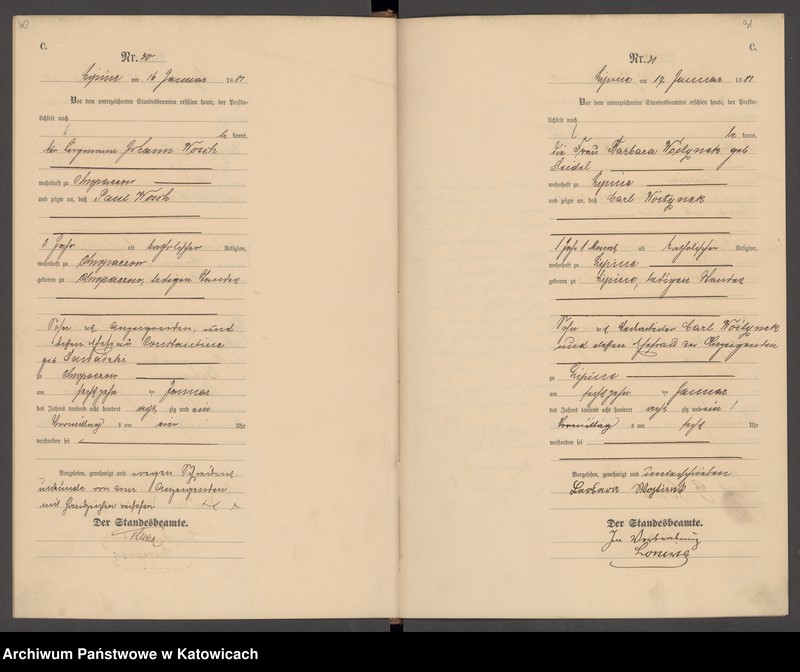 30
C.
Nr. 30
Lipine am 16 Januar 1881
Vor dem unterzeichneten Standesbeamten erschien heute, der Persön-
lichkeit nach
be kannt,
der Bergmann Johann Wosch
wohnhaft zu
und zeigte an, daß Paul Wosch
2 Jahr alt katholischer Religion,
wohnhaft zu
geboren zu ledigen Standes
Sohn des Anzeigenden, und
dessen Ehefrau Constantine
geb
zu
am sechszehn ten Januar
des Jahres tausend acht hundert acht zig und ein
Vormittag s um vier Uhr
verstorben sei
Vorgelesen, genehmigt und wegen Schreibens-
unkunde von dem Anzeigenden
mit Handzeichen versehen
Der Standesbeamte.
31
C.
Nr. 31
Lipine am 17 Januar 1881
Vor dem unterzeichneten Standesbeamten erschien heute, der Persön-
lichkeit nach
be kannt,
die Frau Barbara Woitynek geb
Seidel
wohnhaft zu Lipine
und zeigte an, daß Carl Woitynek
1 Jahr 1 Monat alt katholischer Religion,
wohnhaft zu Lipine
geboren zu Lipine, ledigen Standes
Sohn des Carl Woitynek
und dessen Ehefrau der Anzeigenden
zu Lipine
am sechszehn ten Januar
des Jahres tausend acht hundert acht zig und ein
Vormittag s um sechs Uhr
verstorben sei
Vorgelesen, genehmigt und unterschrieben
Barbara
Der Standesbeamte.
In Vertretung
Archiwum Państwowe w Katowicach